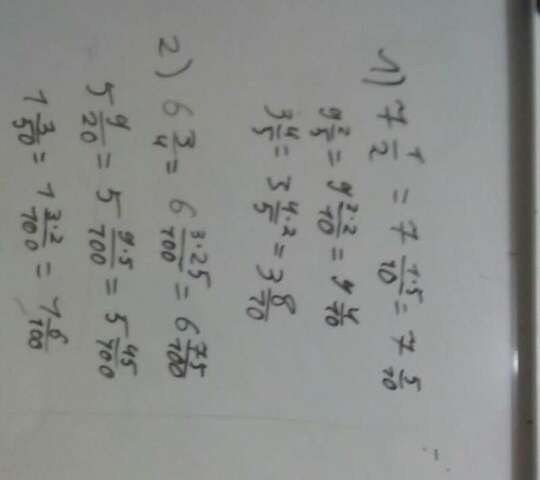 1) 7 1/2 = 7 1·5/10 = 7 5/10
9 2/5 = 9 2·2/10 = 9 4/10
3 4/5 = 3 4·2/5 = 3 8/10
2) 6 3/4 = 6 3·25/100 = 6 75/100
5 9/20 = 5 9·5/100 = 5 45/100
1 3/50 = 1 3·2/100 = 1 6/100